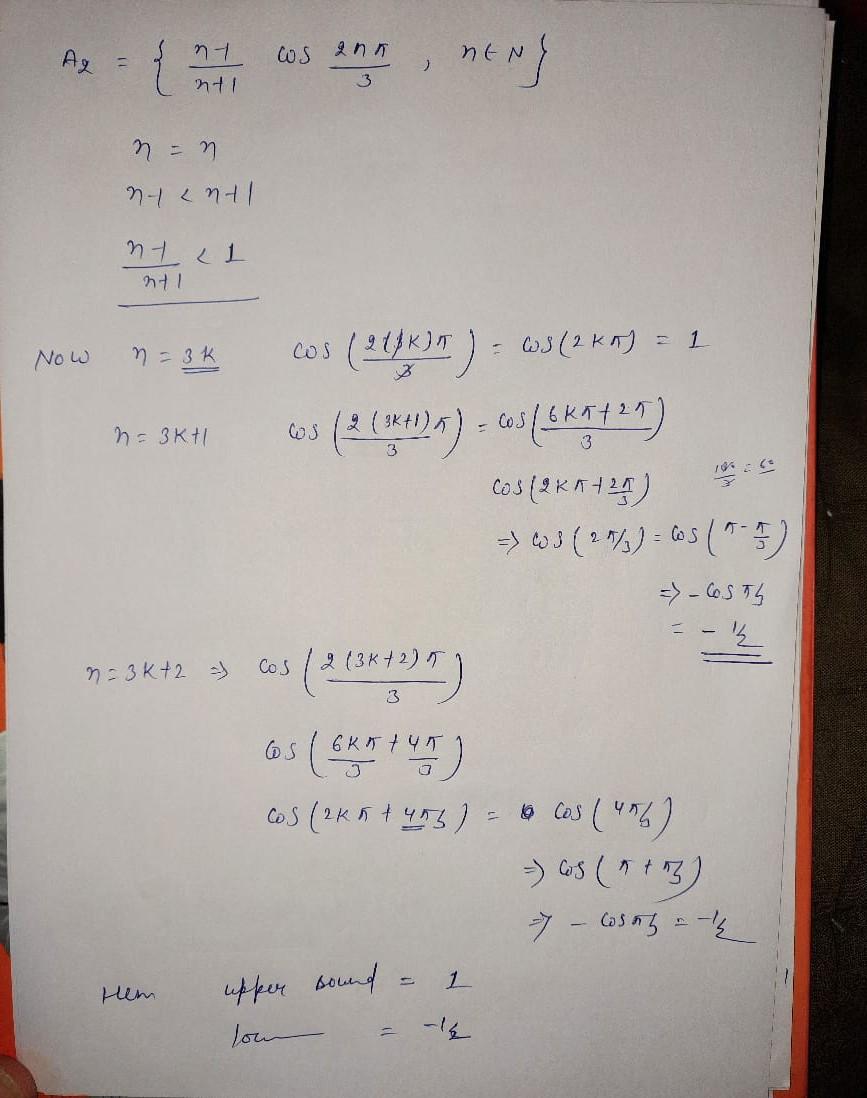 A₂ = { (n-1)/(n+1) cos 2nπ/3 , n ∈ N }
n = n
n-1 < n+1
(n-1)/(n+1) < 1
Now n = 3K cos (2(3K)π/3) = cos(2Kπ) = 1
n = 3K+1 cos (2(3K+1)π/3) = cos((6Kπ+2π)/3)
cos(2Kπ+2π/3) 180/3 = 60
=> cos(2π/3) = cos(π-π/3)
=> -cos π/3
= -1/2
n = 3K+2 => cos (2(3K+2)π/3)
cos (6Kπ/3 + 4π/3)
cos (2Kπ + 4π/3) = cos (4π/3)
=> cos (π + π/3)
=> - cos π/3 = -1/2
upper bound = 1
= -1/2